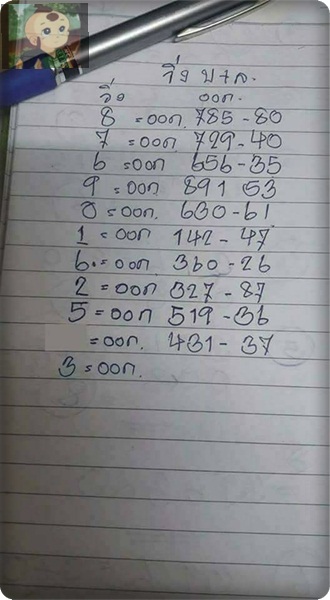 วิ่ง บาท.
วิ่ง ออก.
8 = ออก. 785 - 80
7 = ออก 729 - 40
6 = ออก 656 - 35
9 = ออก 891 53
0 = ออก. 630 - 61
1 = ออก 142 - 47
6. = ออก. 360 - 26
2 = ออก 327 - 87
5 = ออก 519 - 36
= ออก. 431 - 37
3 = ออก.